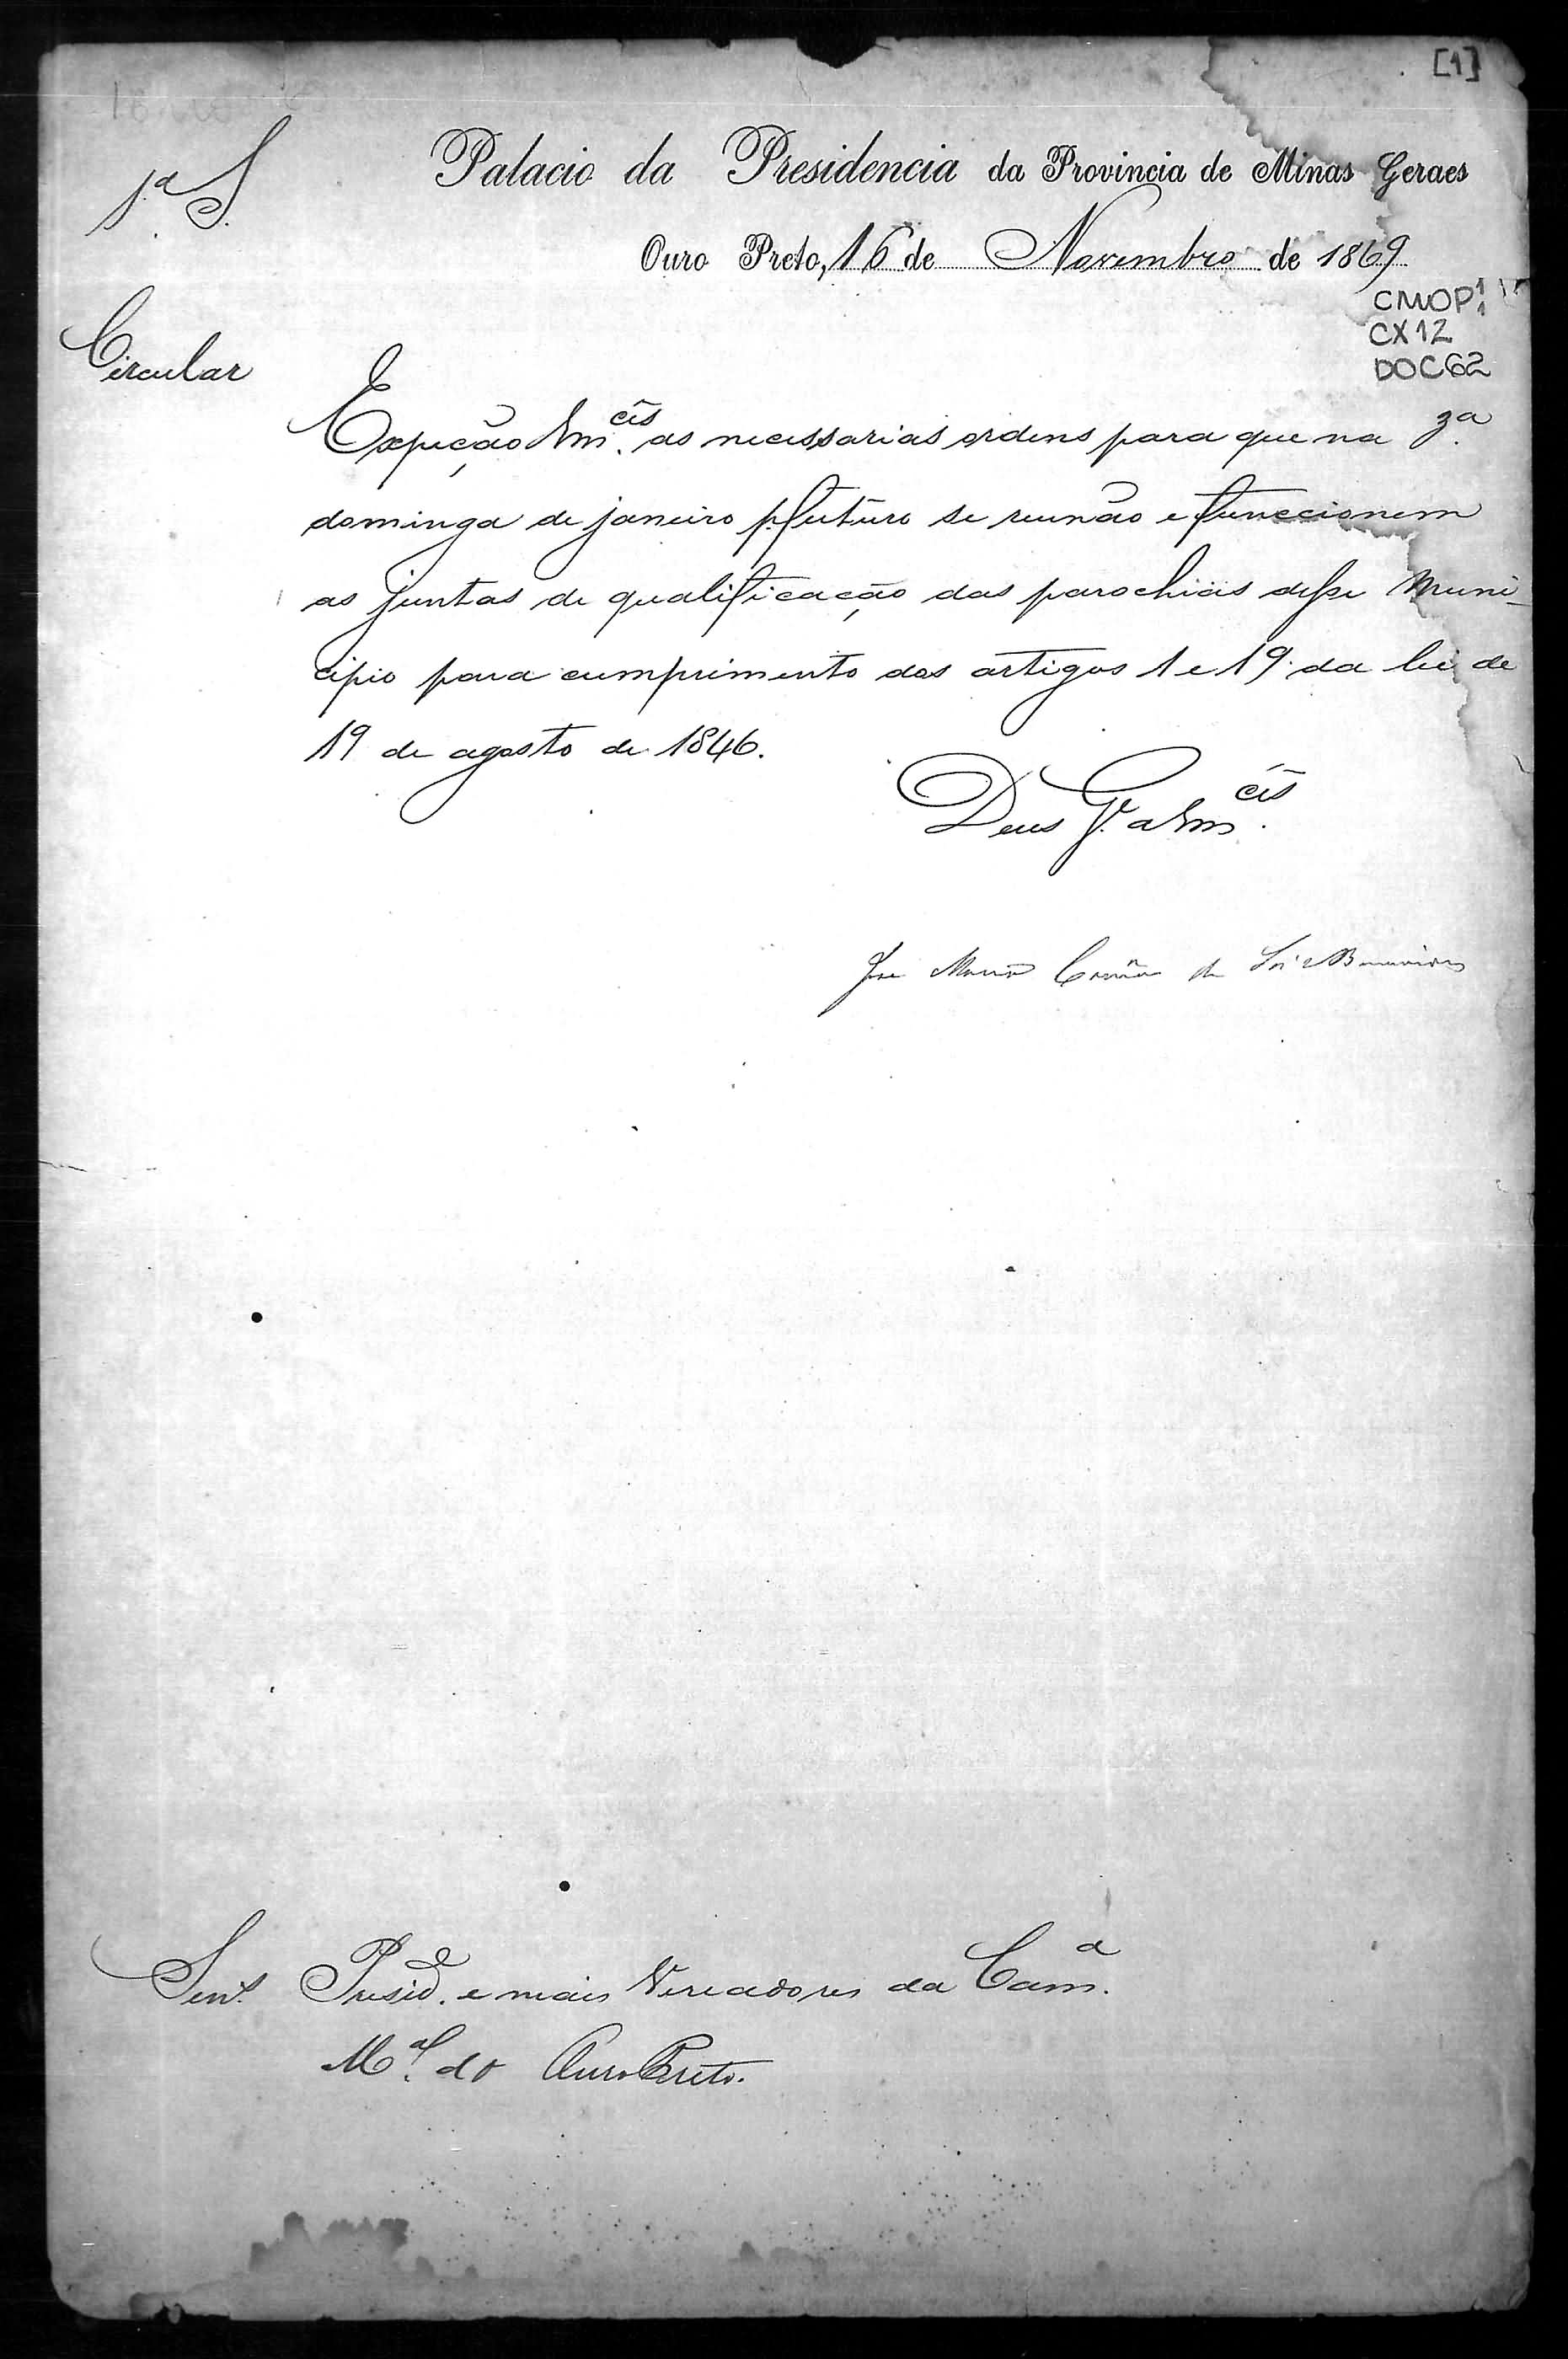 [1]
1.ª S.
Palacio da Presidencia da Provincia de Minas Geraes
Ouro Preto, 16 de Novembro de 1869
CMOP
CX 12
DOC 62
Circular
Expeção Vm.cês as necessarias ordens para que na 3.ª
dominga de janeiro p. futuro se reunão e funccionem
as juntas de qualificação das parochias desse Muni-
cipio para cumprimento dos artigos 1 e 19 da lei de
19 de agosto de 1846.
Deus G.e a Vm.cês
José Maria Corrêa de Sá e Benevides
Senr.s Presid.e e mais Vereadores da Cam.a
M.al do Ouro Preto.